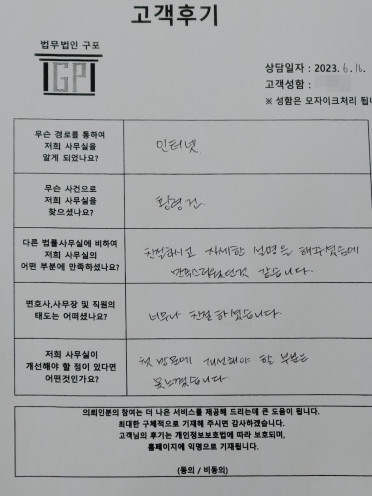 고객후기
법무법인 구포
GP
상담일자 : 2023. 6. 16.
고객성함 :
※ 성함은 모자이크처리 됩니
무슨 경로를 통하여
저희 사무실을
알게 되었나요?
인터넷
무슨 사건으로
저희 사무실을
찾으셨나요?
다른 법률사무실에 비하여
저희 사무실의
어떤 부분에 만족하셨나요?
친절하시고 자세한 설명을 해주셨음에
만족스러웠던것 같습니다.
변호사,사무장 및 직원의
태도는 어떠셨나요?
너무나 친절하셨습니다.
저희 사무실이
개선해야 할 점이 있다면
어떤것인가요?
첫 방문에 개선해야 할 부분은
못느꼈습니다
의뢰인분의 참여는 더 나은 서비스를 제공해 드리는데 큰 도움이 됩니다.
최대한 구체적으로 기재해 주시면 감사하겠습니다.
고객님의 후기는 개인정보보호법에 따라 보호되며,
홈페이지에 익명으로 기재됩니다.
(동의 / 비동의)